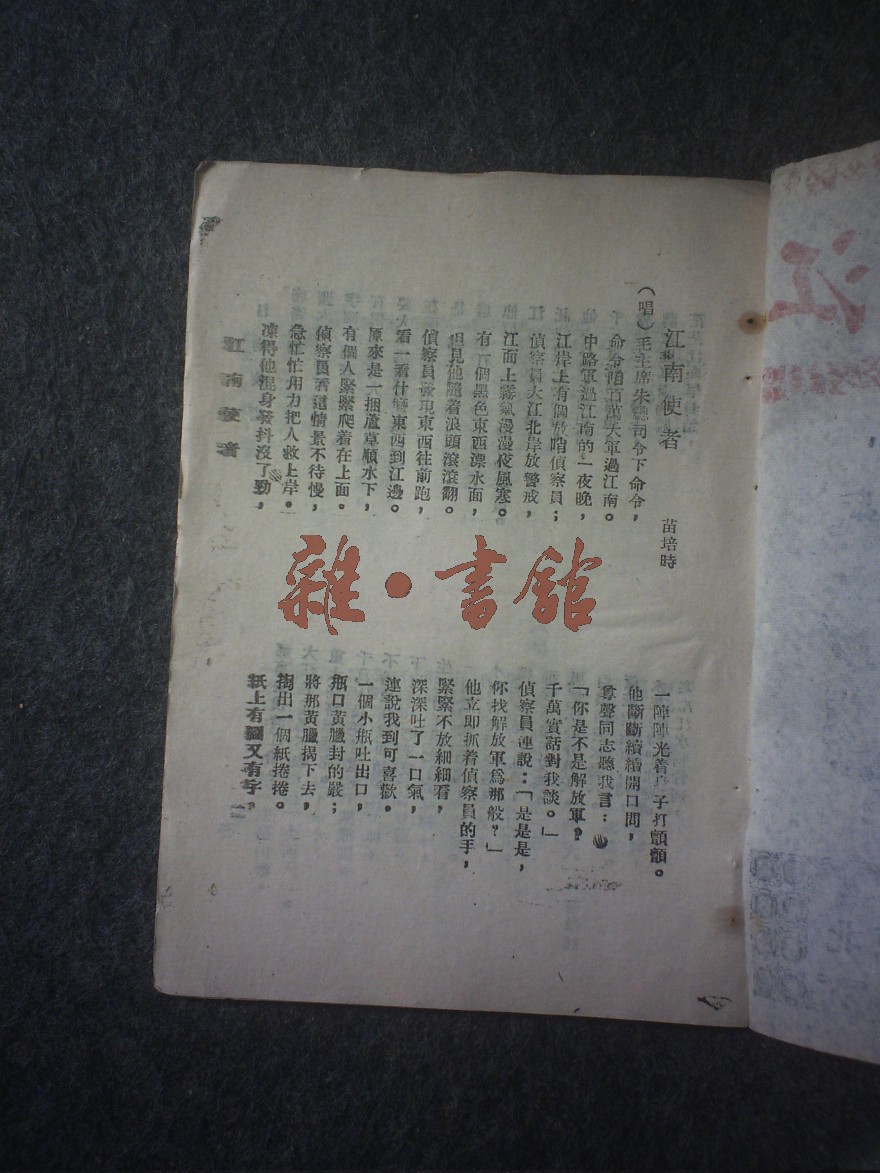 江南使者
苗培時
（唱）毛主席朱總司令下命令，
命令咱百萬大軍過江南。
中路軍過江南的一夜晚，
江岸上有個放哨偵察員；
偵察員大江北岸放警戒，
江面上霧氣漫漫夜風寒。
有一個黑色東西漂水面，
但見他隨着浪頭滾滾翻。
偵察員發現東西往前跑，
看一看什麼東西到江邊。
原來是一捆蘆草順水下，
有個人緊緊爬着在上面。
偵察員看這情景不待慢，
急忙忙用力把人救上岸。
凍得他混身發抖沒了勁，
江南使者
一陣陣光着身子打顫顫。
他斷斷續續開口問，
尊聲同志聽我言：
「你是不是解放軍？
千萬實話對我談。」
偵察員連說：「是是是，
你找解放軍爲那般？」
他立即抓着偵察員的手，
緊緊不放細細看，
深深吐了一口氣，
連說我到可喜歡。
一個小瓶吐出口，
瓶口黃臘封的嚴；
將那黃臘揭下去，
掏出一個紙捲捲。
紙上有圖又有字，
一
雜·書館
江
北